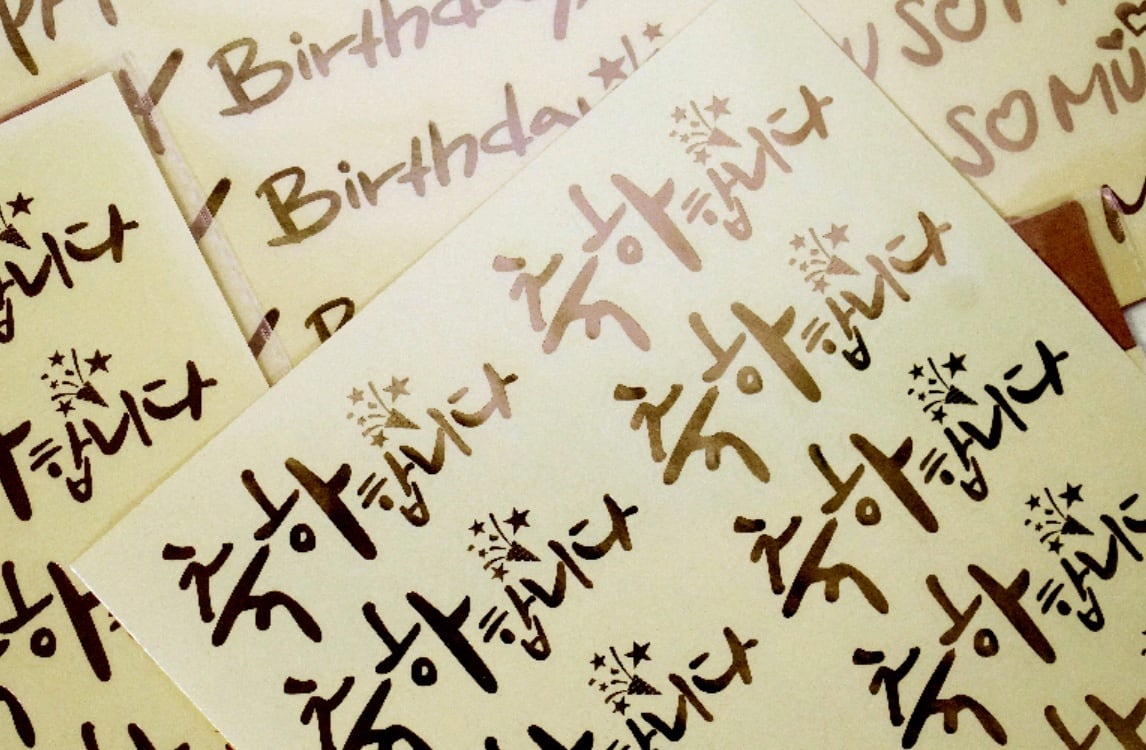 Birthday
Birthday
SO
SO MU
합니다
합니다
하
축하합니다
축하합니다
축하합니다
축하합니다
축하합니다
축하합니
합니다